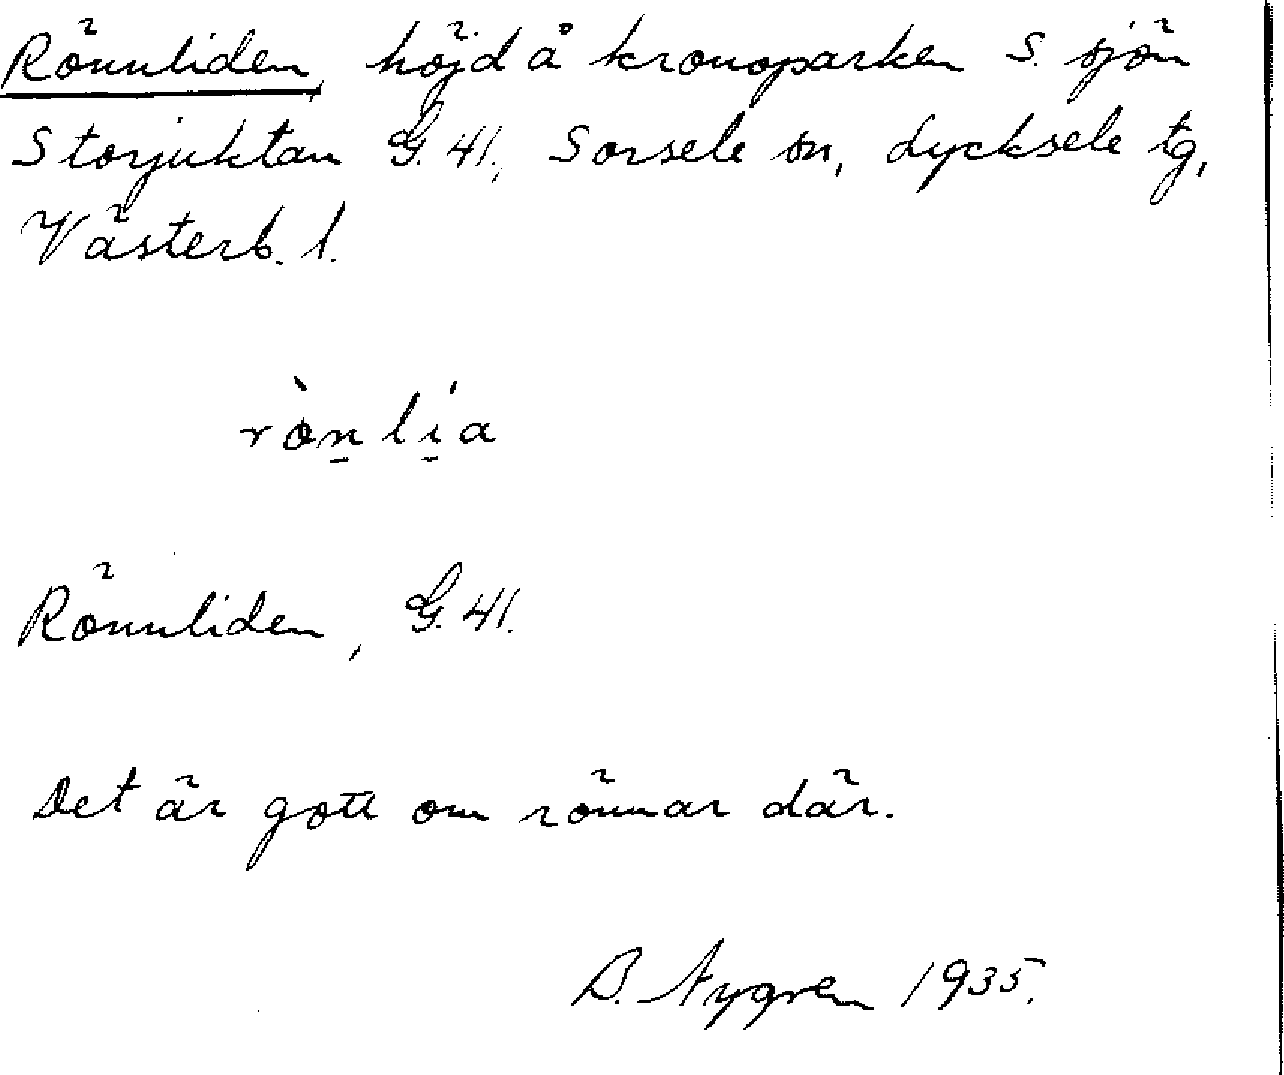 Rönnliden, höjd å kronoparken S. sjön
Storjuktan G. 41, Sorsele sn, Lycksele tg,
Västerb. l.
rònlía
Rönnliden, G. 41.
Det är gott om rönnar där.
B. Nygren 1935.